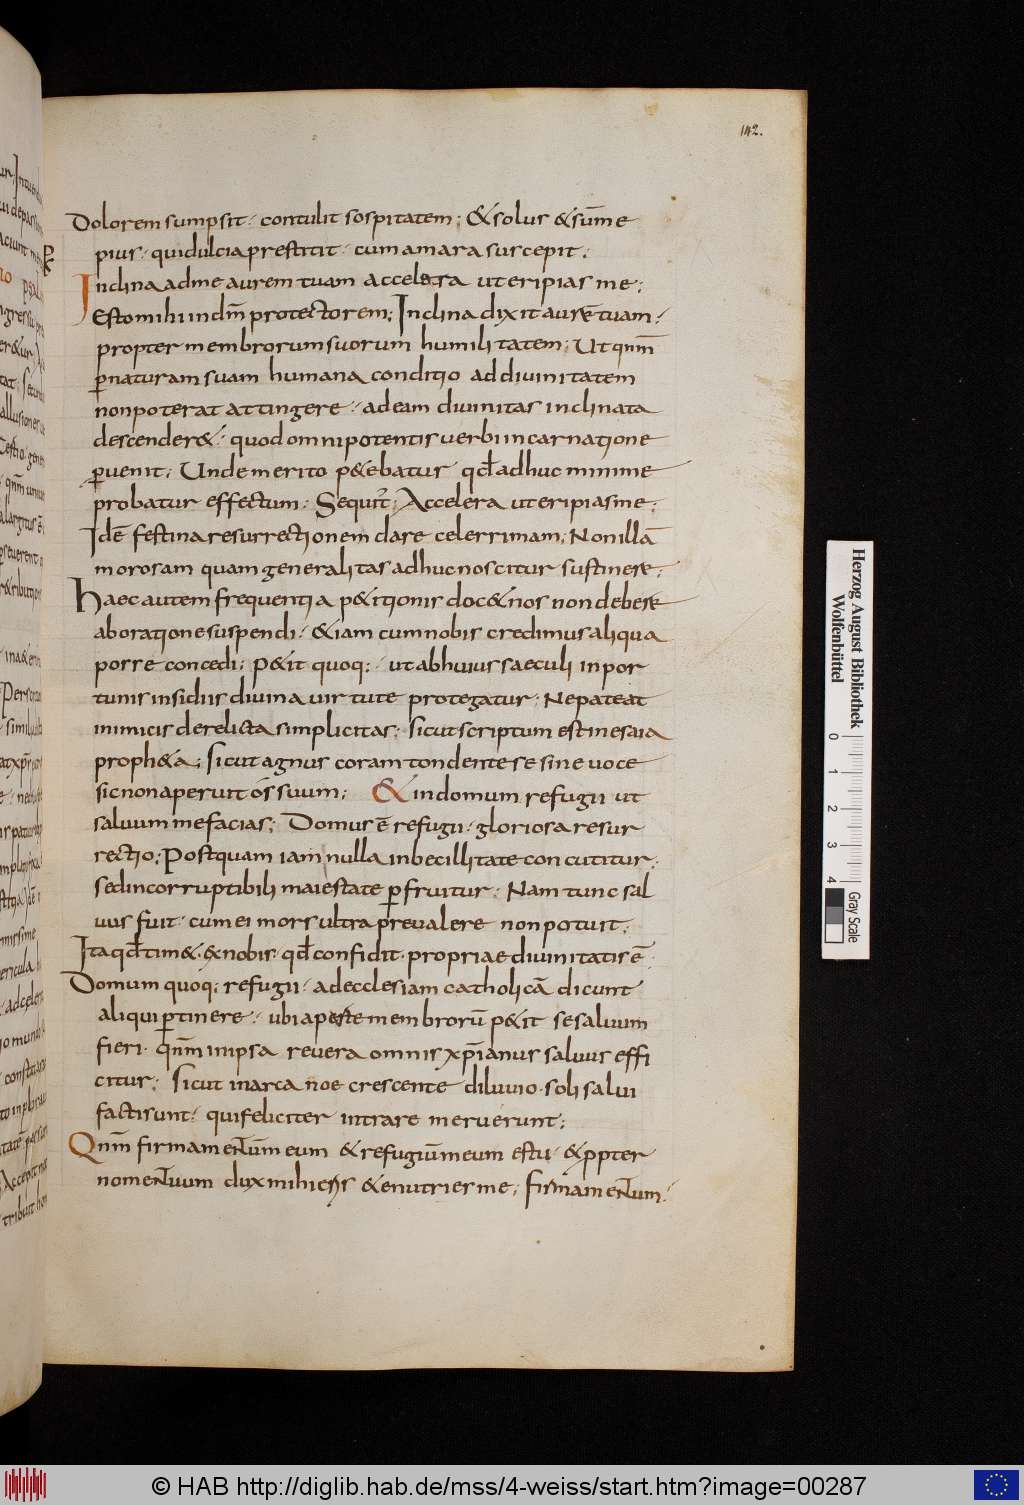 142.
Dolorem sumpsit · contulit sospitatem ; & solus & sūme
pius · qui dulcia prestitit · cum amara suscepit ;
Inclina ad me aurem tuam accelera ut eripias me ;
Esto mihi in dm̄ protectorem ; Inclina dixit aurē tuam ·
propter membrorum suorum humilitatem ; Ut qnm̄
ꝑ naturam suam humana conditio ad divinitatem
non poterat attingere · ad eam divinitas inclinata
descender& · quod omnipotentis verbi incarnatione
ꝑvenit ; Unde merito p&ebatur qđ adhuc minime
probatur effectum · Sequit̄ ; Accelera ut eripias me ;
Idē festina resurrectionem dare celerrimam ; Non illā
morosam quam generalitas adhuc noscitur sustinere ;
Haec autem frequentia p&itionis doc& nos non debere
ab oratione suspendi · & iam cum nobis credimus aliqua
posse concedi ; P&it quoq; · ut ab huius saeculi inpor
tunis insidiis divina virtute protegatur · Ne pateat
inimicis derelicta simplicitas · sicut scriptum est in esaia
proph&a ; Sicut agnus coram tondente se sine voce
sic non aperuit os̄ suum ; & in domum refugii ut
salvum me facias ; Domus ē refugii · gloriosa resur
rectio ; Postquam iam nulla inbecillitate concutitur ·
sed incorruptibili maiestate ꝑfruitur · Nam tunc sal
vus fuit · cum ei mors ultra prevalere non potuit ;
Itaq qđ tim& · ex nobis · qđ confidit · propriae divinitatis ē
Domum quoq; refugii · ad ecclesiam catholicā dicunt
aliqui ꝑtinere · ubi a peste membrorū p&it se salvum
fieri · qnm̄ in ipsa revera omnis xp̄ianus salvus effi
citur ; Sicut in arca noe crescente diluvio · soli salvi
facti sunt · qui feliciter intrare meruerunt ;
Qnm̄ firmamentum meum & refugiū meum es tu · & ꝓpter
nomen tuum dux mihi eris & enutries me ; firmamentum ·
Herzog August Bibliothek
Wolfenbüttel
0 1 2 3 4
Gray Scale
© HAB http://diglib.hab.de/mss/4-weiss/start.htm?image=00287